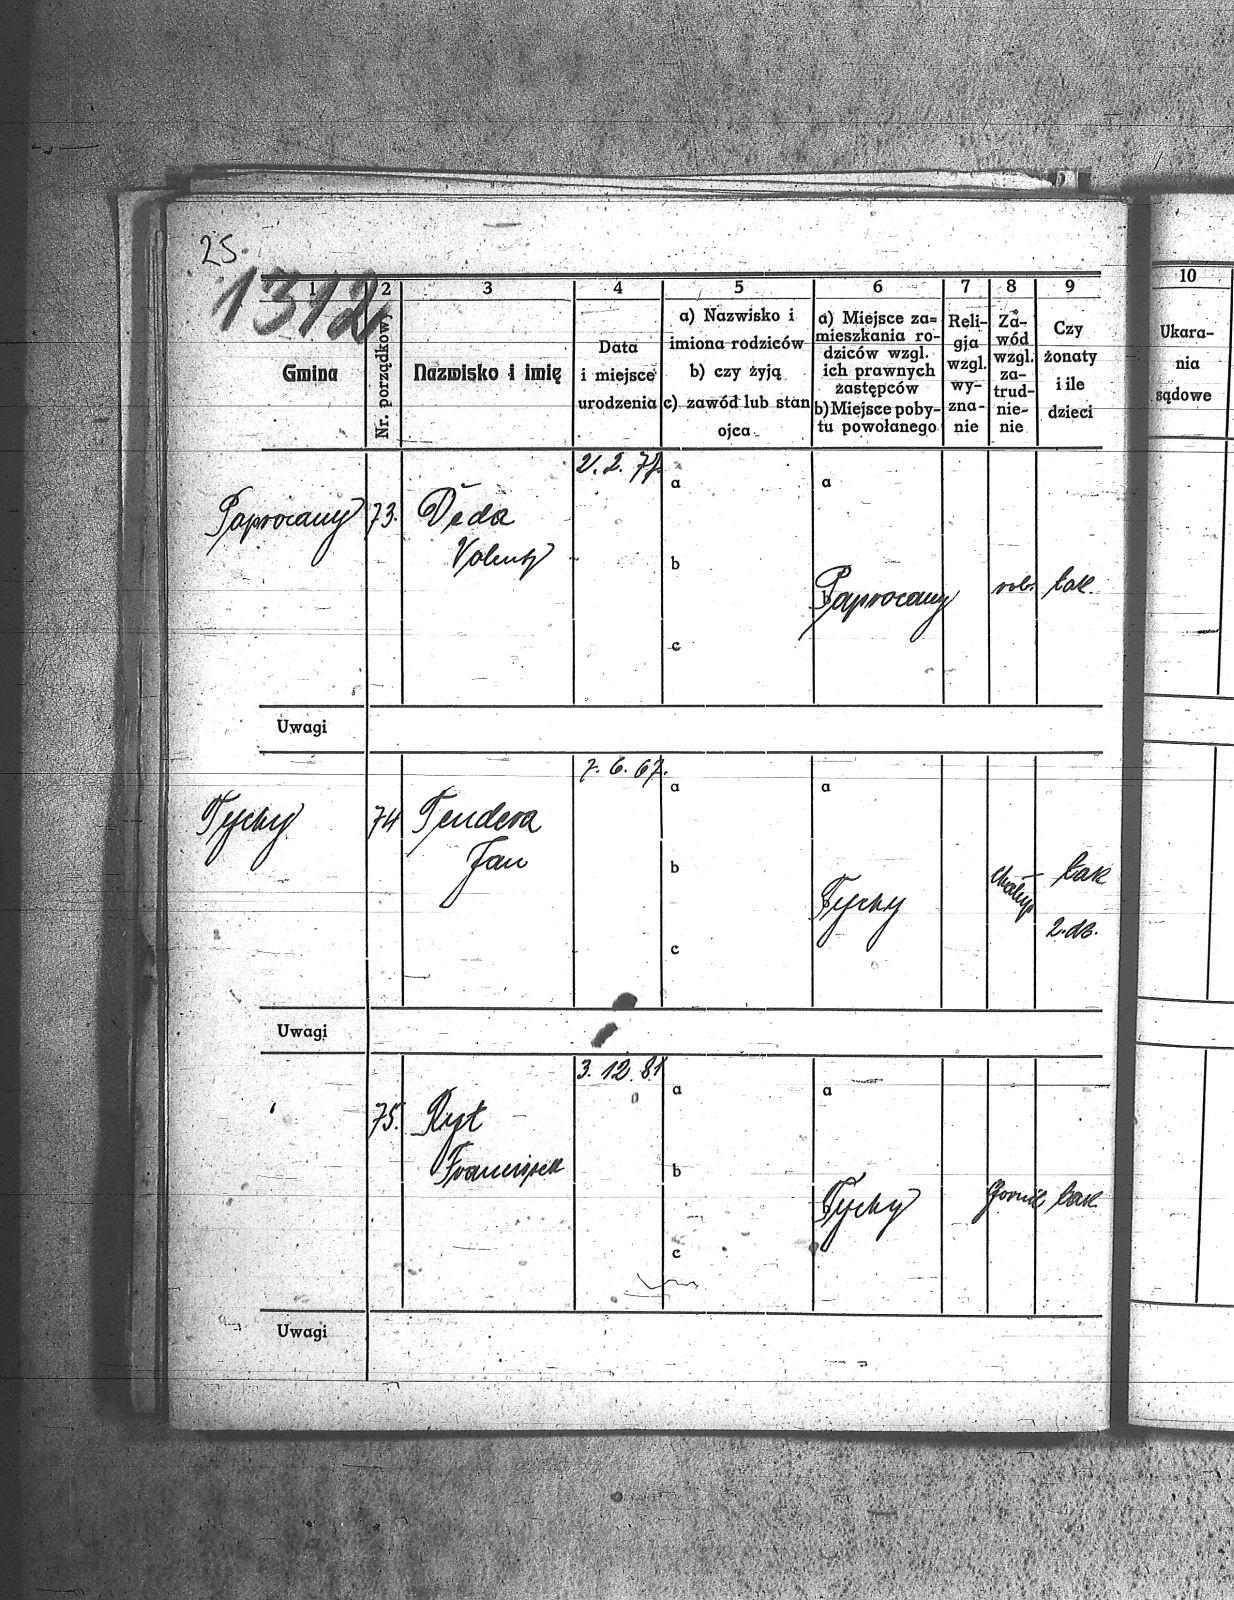 25.
1312
1
2
3
4
5
6
7
8
9
10
Gmina
Nr. porządkowy
Nazwisko i imię
Data
i miejsce
urodzenia
a) Nazwisko i
imiona rodziców
b) czy żyją
c) zawód lub stan
ojca
a) Miejsce za=
mieszkania ro-
dziców wzgl.
ich prawnych
zastępców
b) Miejsce poby-
tu powołanego
Reli-
gja
wzgl.
wy-
zna-
nie
Za-
wód
wzgl.
za-
trud-
nie-
nie
Czy
żonaty
i ile
dzieci
Ukara-
nia
sądowe
Paprocany
73.
Deda
21. 2. 77.
a
b
c
a
b
Paprocany
rob.
tak.
Uwagi
Tychy
74
Tendera
Jan
7. 6. 67.
a
b
c
a
b
Tychy
tak
2. dz.
Uwagi
75.
Ryt
Franciszek
3. 12. 81
a
b
c
a
b
Tychy
gornik
tak
Uwagi